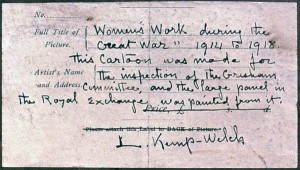 No.
Full Title of Picture. "Women's Work during the Great War" 1914 to 1918.
This Cartoon was made for
Artist's Name and Address. the inspection of the Grisham
Committee, and the large panel in
the Royal Exchange was painted from it.
Price, £
Please attach this Label to BACK of Picture.
L. Kemp-Welch